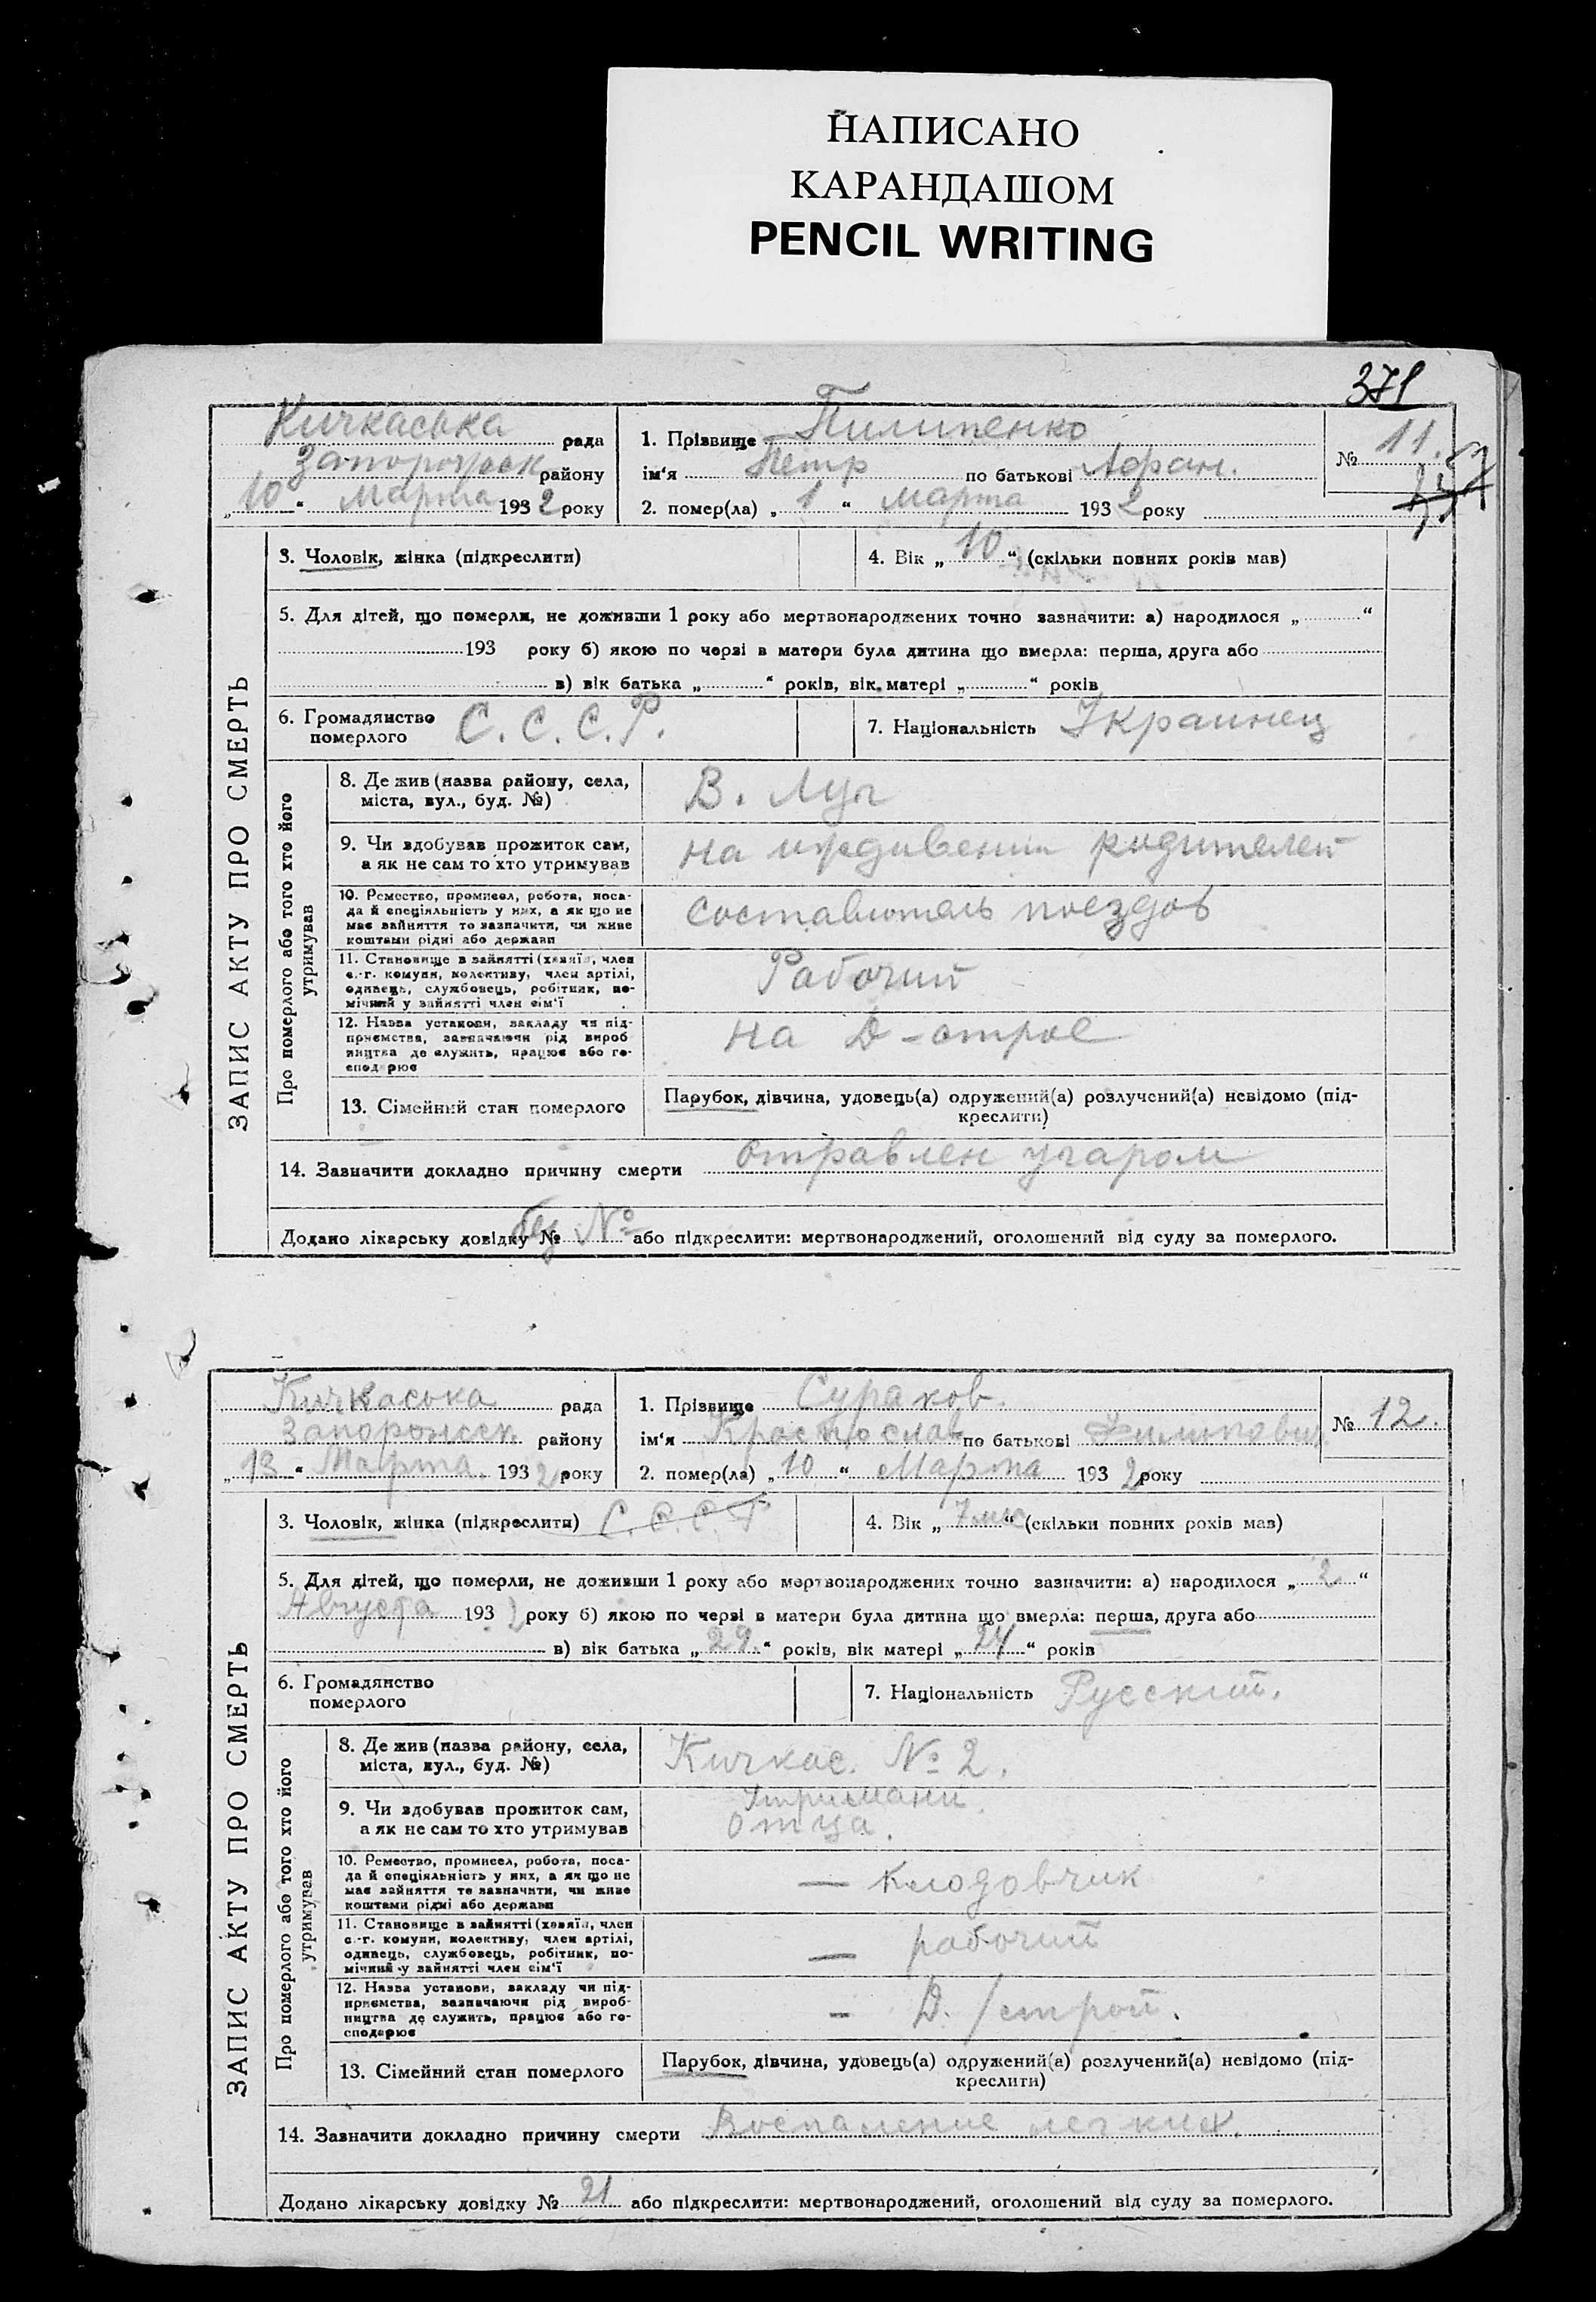 НАПИСАНО
КАРАНДАШОМ
PENCIL WRITING
371
ЗАПИС АКТУ ПРО СМЕРТЬ
Кичкаська рада
Запорожск району
„10“ Марта 1932 року
1. Прізвище Пилипенко
ім‘я Петр по батькові Афан.
2. помер(ла) „1“ марта 1932 року
№ 11.
3. Чоловік, жінка (підкреслити)
4. Вік „10“ (скільки повних років мав)
5. Для дітей, що померли, не доживши 1 року або мертвонароджених точно зазначити: а) народилося „ “
193 року б) якою по черзі в матери була дитина що вмерла: перша, друга або
в) вік батька „ “ років, вік матері „ “ років
6. Громадянство померлого С. С. С. Р.
7. Національність Украинец
Про померлого або того хто його утримував
8. Де жив (назва району, села,
міста, вул., буд. №)
В. Луг
9. Чи здобував прожиток сам,
а як не сам то хто утримував
на родителей
10. Ремество, промисел, робота, поса-
да й спеціяльність у них, а як що не
має зайняття то зазначити, чи живе
коштами рідні або держави
составитель поездов
11. Становище в зайнятті (хазяїн, член
с.-г. комуни, колективу, член артілі,
одинець, службовець, робітник, по-
мічний у зайнятті член сім‘ї
Рабочий
12. Назва установи, закладу чи під-
приємства, зазначаючи рід вироб
ництва де служить, працює або го-
сподарює
на Д-строе
13. Сімейний стан померлого
Парубок, дівчина, удовець(а) одружений(а) розлучений(а) невідомо (під-
креслити)
14. Зазначити докладно причину смерти отравлен угаром
Додано лікарську довідку № без № або підкреслити: мертвонароджений, оголошений від суду за померлого.
ЗАПИС АКТУ ПРО СМЕРТЬ
Кичкаська рада
Запорожск. району
„13“ Марта 1932 року
1. Прізвище Сураков.
ім‘я по батькові Филипович
2. помер(ла) „10“ Марта 1932 року
№ 12.
3. Чоловік, жінка (підкреслити) С. С. С. Р
4. Вік „7 “ (скільки повних рохів мав)
5. Для дітей, що померли, не доживши 1 року або мертвонароджених точно зазначити: а) народилося „2“
Августа 193 року б) якою по черзі в матери була дитина що вмерла: перша, друга або
в) вік батька „29.“ років, вік матері „24“ років
6. Громадянство
померлого
7. Національність Русский.
Про померлого або того хто його утримував
8. Де жив (назва району, села,
міста, вул., буд. №)
Кичкас. № 2.
9. Чи здобував прожиток сам,
а як не сам то хто утримував
Утримани
отца.
10. Ремество, промисел, робота, поса-
да й спеціяльність у них, а як що не
має зайняття то зазначити, чи живе
коштами рідні або держави
— кладовчик
11. Становище в зайнятті (хазяїн, член
с.-г. комуни, колективу, член артілі,
одинець, службовець, робітник, по-
мічний у зайнятті член сім‘ї
— рабочий
12. Назва установи, закладу чи під-
приємства, зазначаючи рід вироб-
ництва де служить, працює або го-
сподарює
— Д./строй.
13. Сімейний стан померлого
Парубок, дівчина, удовець(а) одружений(а) розлучений(а) невідомо (під-
креслити)
14. Зазначити докладно причину смерти Воспаление легких.
Додано лікарську довідку № 21 або підкреслити: мертвонароджений, оголошений від суду за померлого.